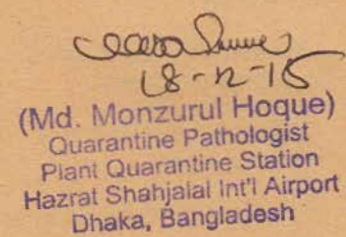 18-12-15
(Md. Monzurul Hoque)
Quarantine Pathologist
Plant Quarantine Station
Hazrat Shahjalal Int'l Airport
Dhaka, Bangladesh